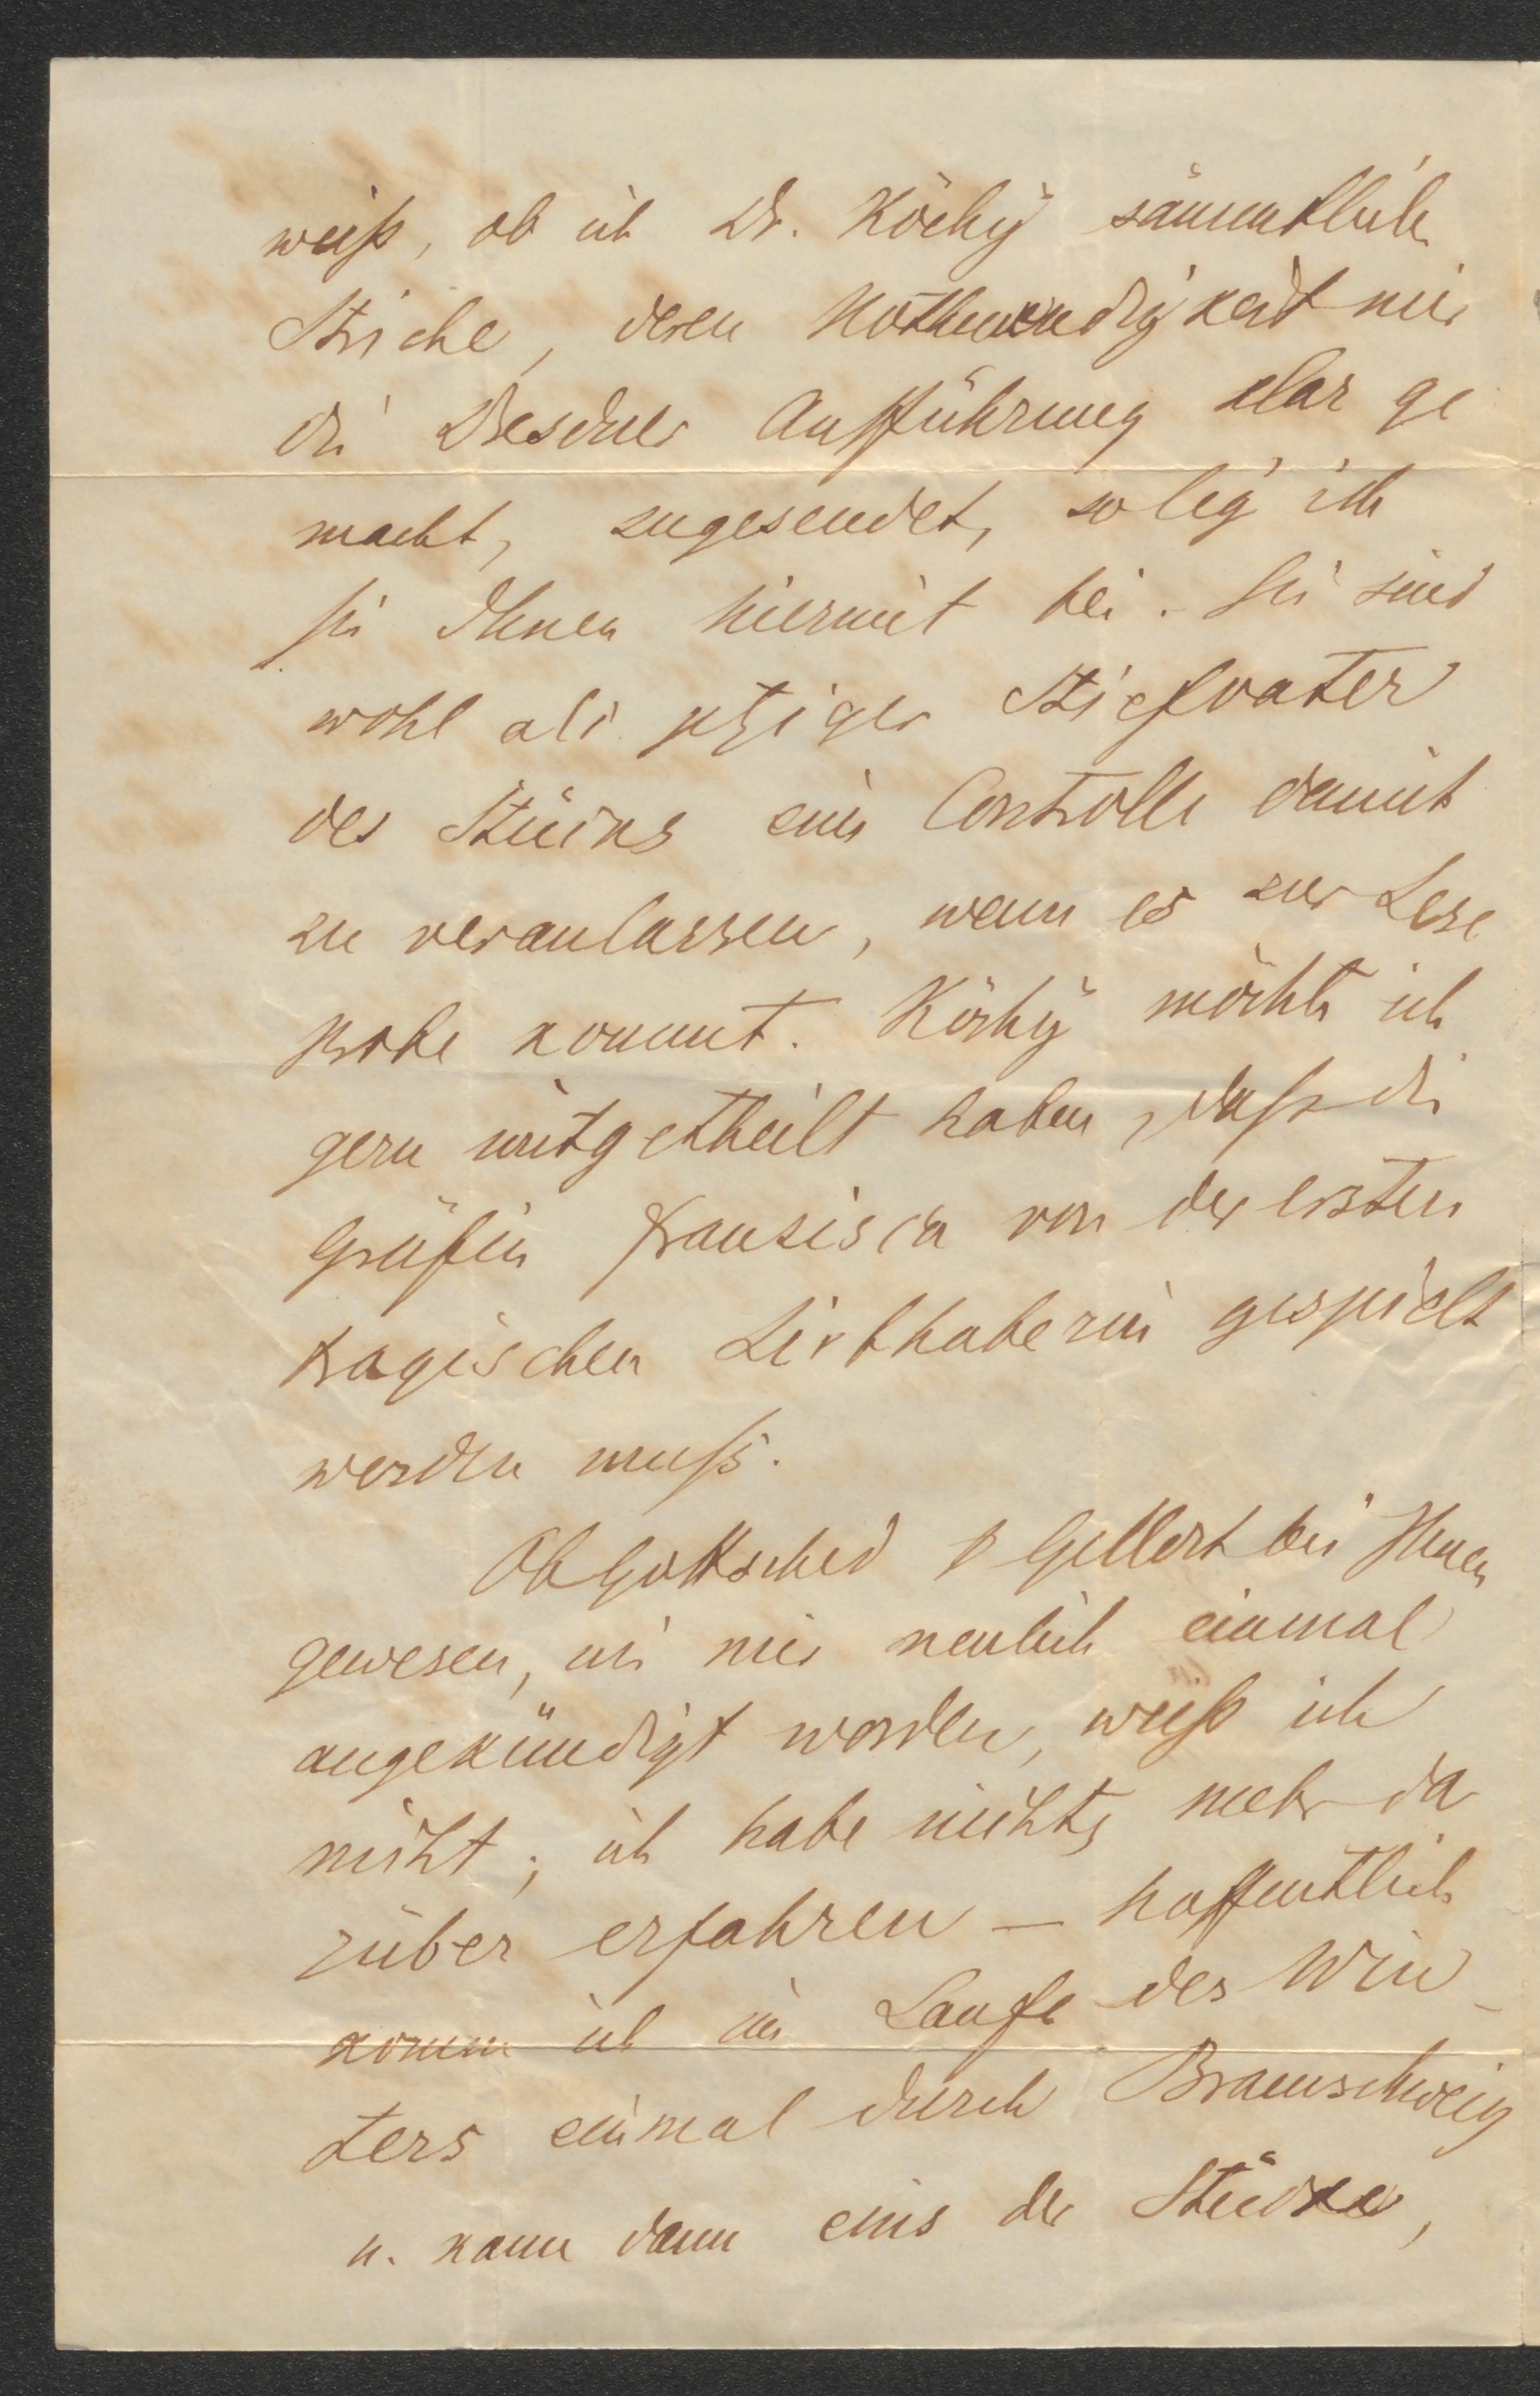 weiß, ob ich Dr. Köchÿ sämmtliche
Striche, deren Nothwendigkeit mir
die Dresdner Aufführung klar ge
macht, zugesendet, so leg' ich
sie Ihnen hiermit bei. Sie sind
wohl als jetziger Stiefvater
des Stücks eine Controlle damit
zu veranlassen, wenn es zur Lese
probe kommt. Köchÿ möchte ich
gern mitgetheilt haben, daß die
Gräfin Franzisca von der ersten
tragischen Liebhaberin gespielt
werden muß.
Ob Gottsched & Gellert bei Ihnen
gewesen, wie mir neulich einmal
angekündigt worden, weiß ich
nicht; ich habe nichts mehr da
rüber erfahren — hoffentlich
komm ich im Laufe des Win_
ters einmal durch Braunschweig
u. kann dann eins der Stücke,